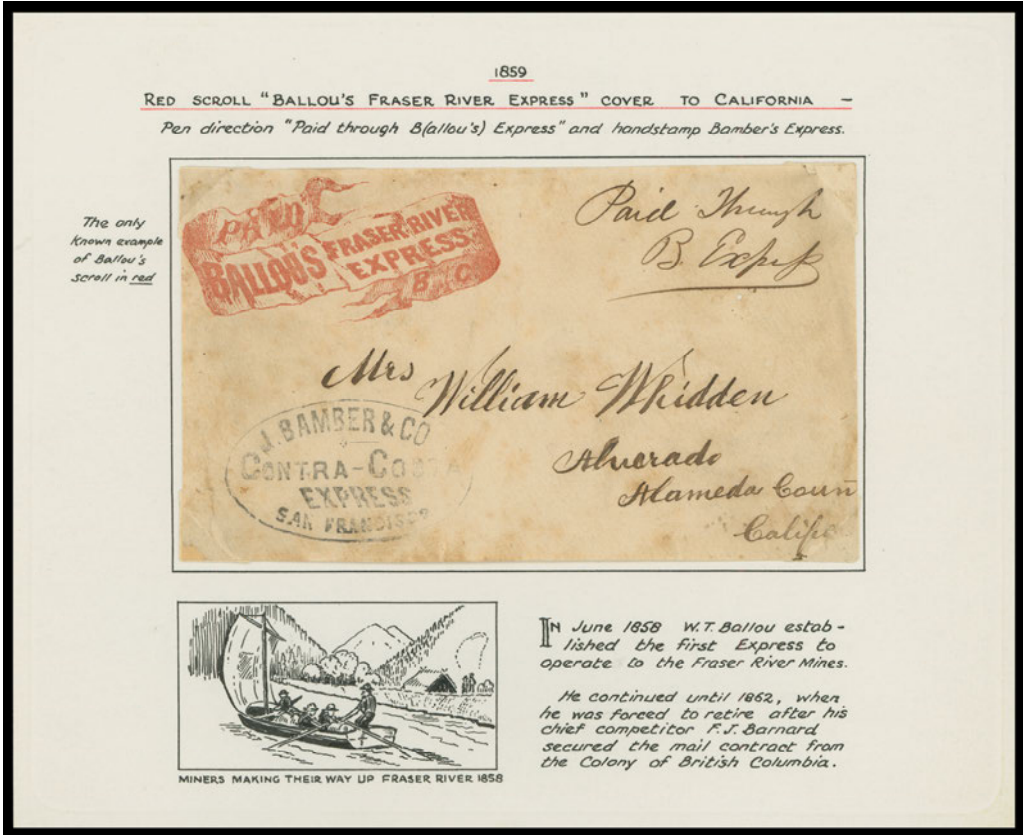 1859
RED SCROLL "BALLOU'S FRASER RIVER EXPRESS" COVER TO CALIFORNIA –
Pen direction "Paid through B(allou's) Express" and handstamp Bamber's Express.
The only
known example
of Ballou's
scroll in red
PAID
BALLOU'S FRASER RIVER
EXPRESS
B C
Paid Through
B. Exps
Mrs William Whidden
Alverado
Alameda Coun
Califo
J. BAMBER & CO
CONTRA-COSTA
EXPRESS
SAN FRANCISCO
MINERS MAKING THEIR WAY UP FRASER RIVER 1858
IN June 1858 W.T. Ballou estab-
lished the first Express to
operate to the Fraser River Mines.
He continued until 1862, when
he was forced to retire after his
chief competitor F.J. Barnard
secured the mail contract from
the Colony of British Columbia.